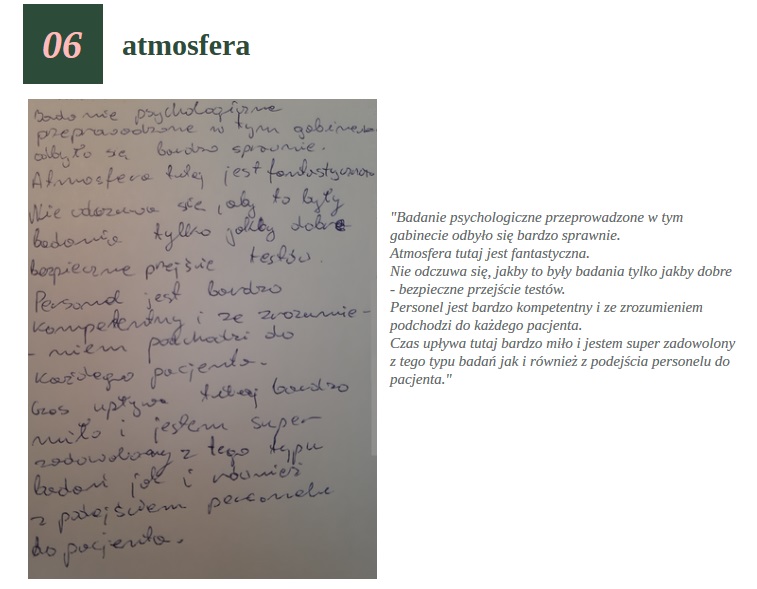 06 atmosfera
Badanie psychologiczne
przeprowadzone w tym gabinecie
odbyło się bardzo sprawnie.
Atmosfera tutaj jest fantastyczna
Nie odczuwa się, aby to były
badania tylko jakby dobre
bezpieczne przejście testów.
Personel jest bardzo
kompetentny i ze zrozumie-
- niem podchodzi do
każdego pacjenta.
Czas upływa tutaj bardzo
miło i jestem super
zadowolony z tego typu
badań jak i również
z podejściem personelu
do pacjenta.
"Badanie psychologiczne przeprowadzone w tym
gabinecie odbyło się bardzo sprawnie.
Atmosfera tutaj jest fantastyczna.
Nie odczuwa się, jakby to były badania tylko jakby dobre
- bezpieczne przejście testów.
Personel jest bardzo kompetentny i ze zrozumieniem
podchodzi do każdego pacjenta.
Czas upływa tutaj bardzo miło i jestem super zadowolony
z tego typu badań jak i również z podejścia personelu do
pacjenta."